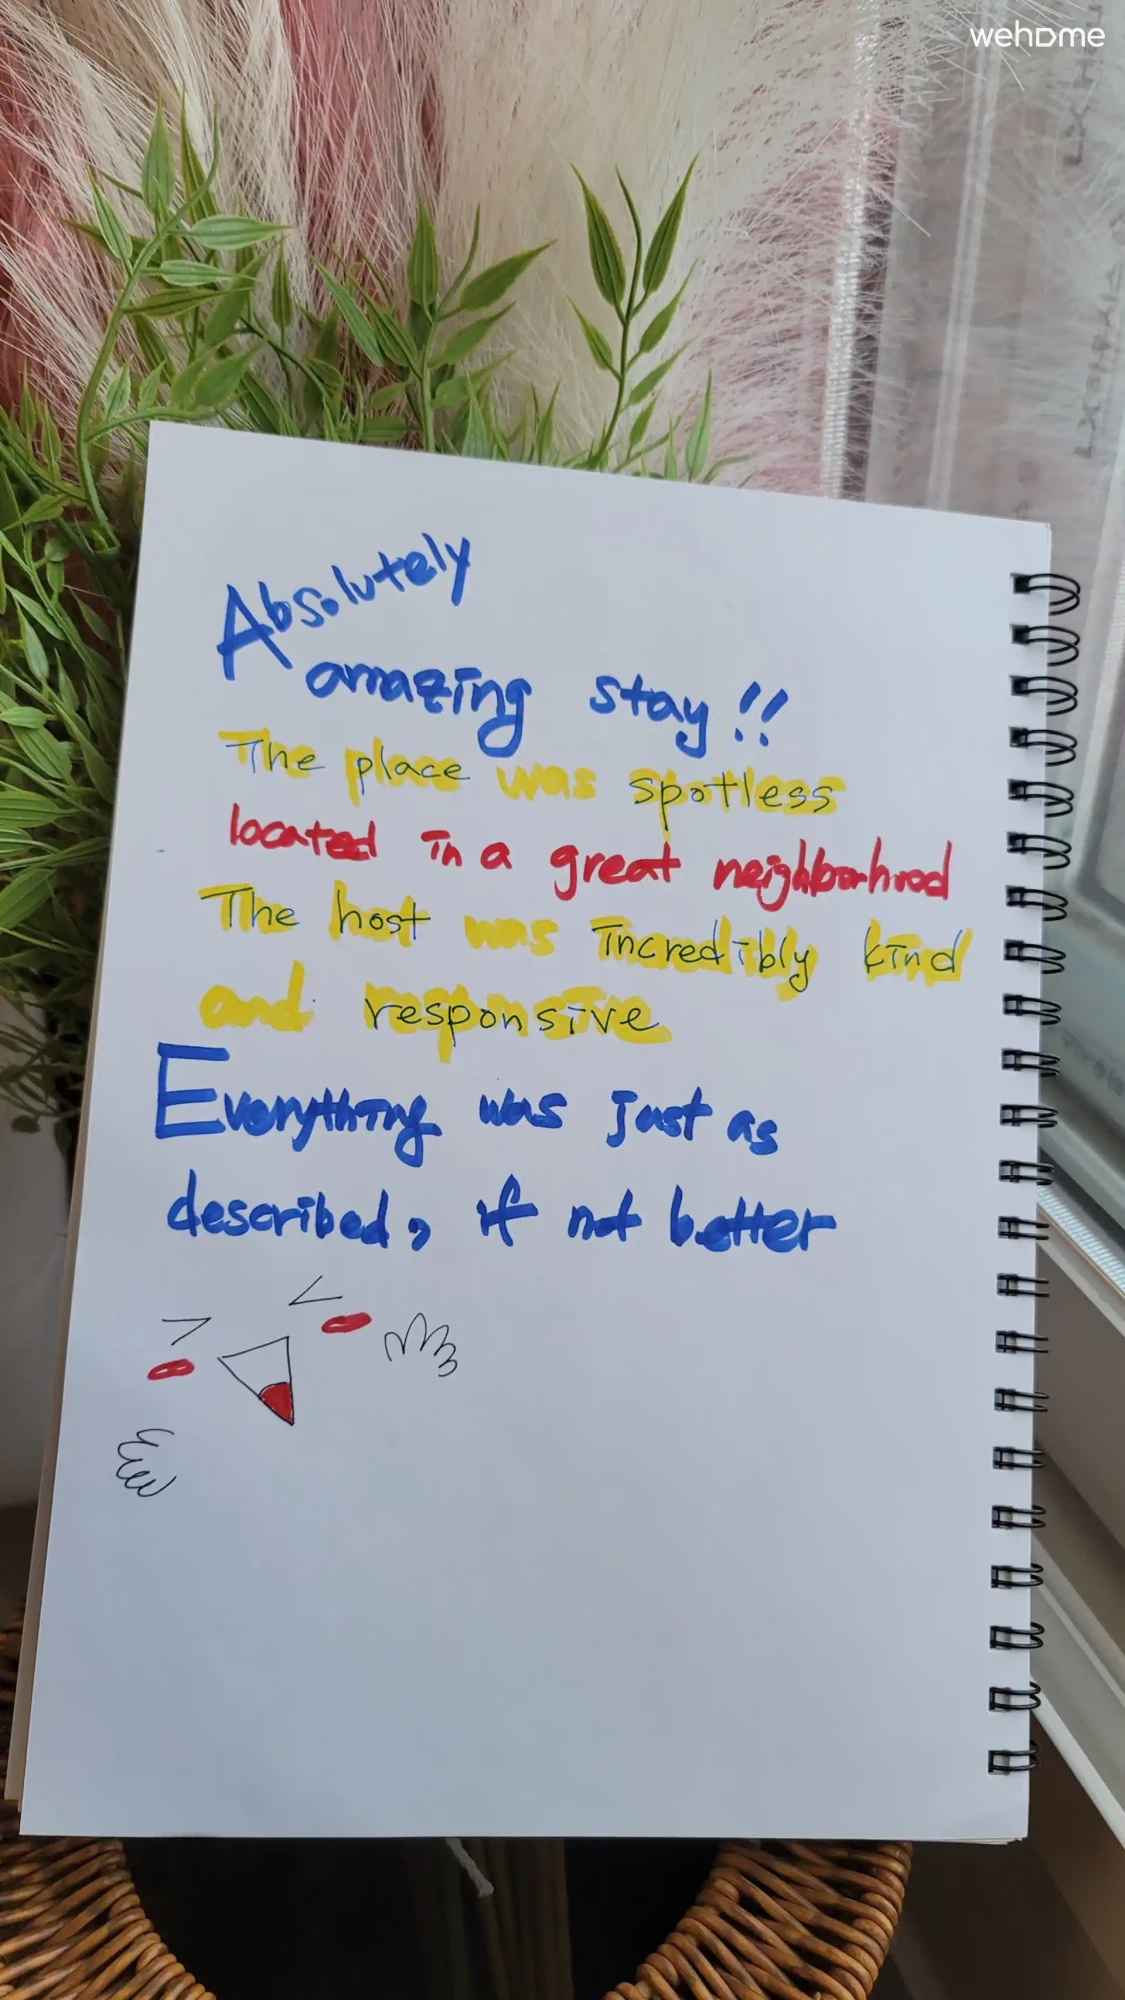 wehome
Absolutely
amazing stay!!
The place was spotless
located in a great neighborhood
The host was incredibly kind
and responsive
Everything was just as
described, if not better